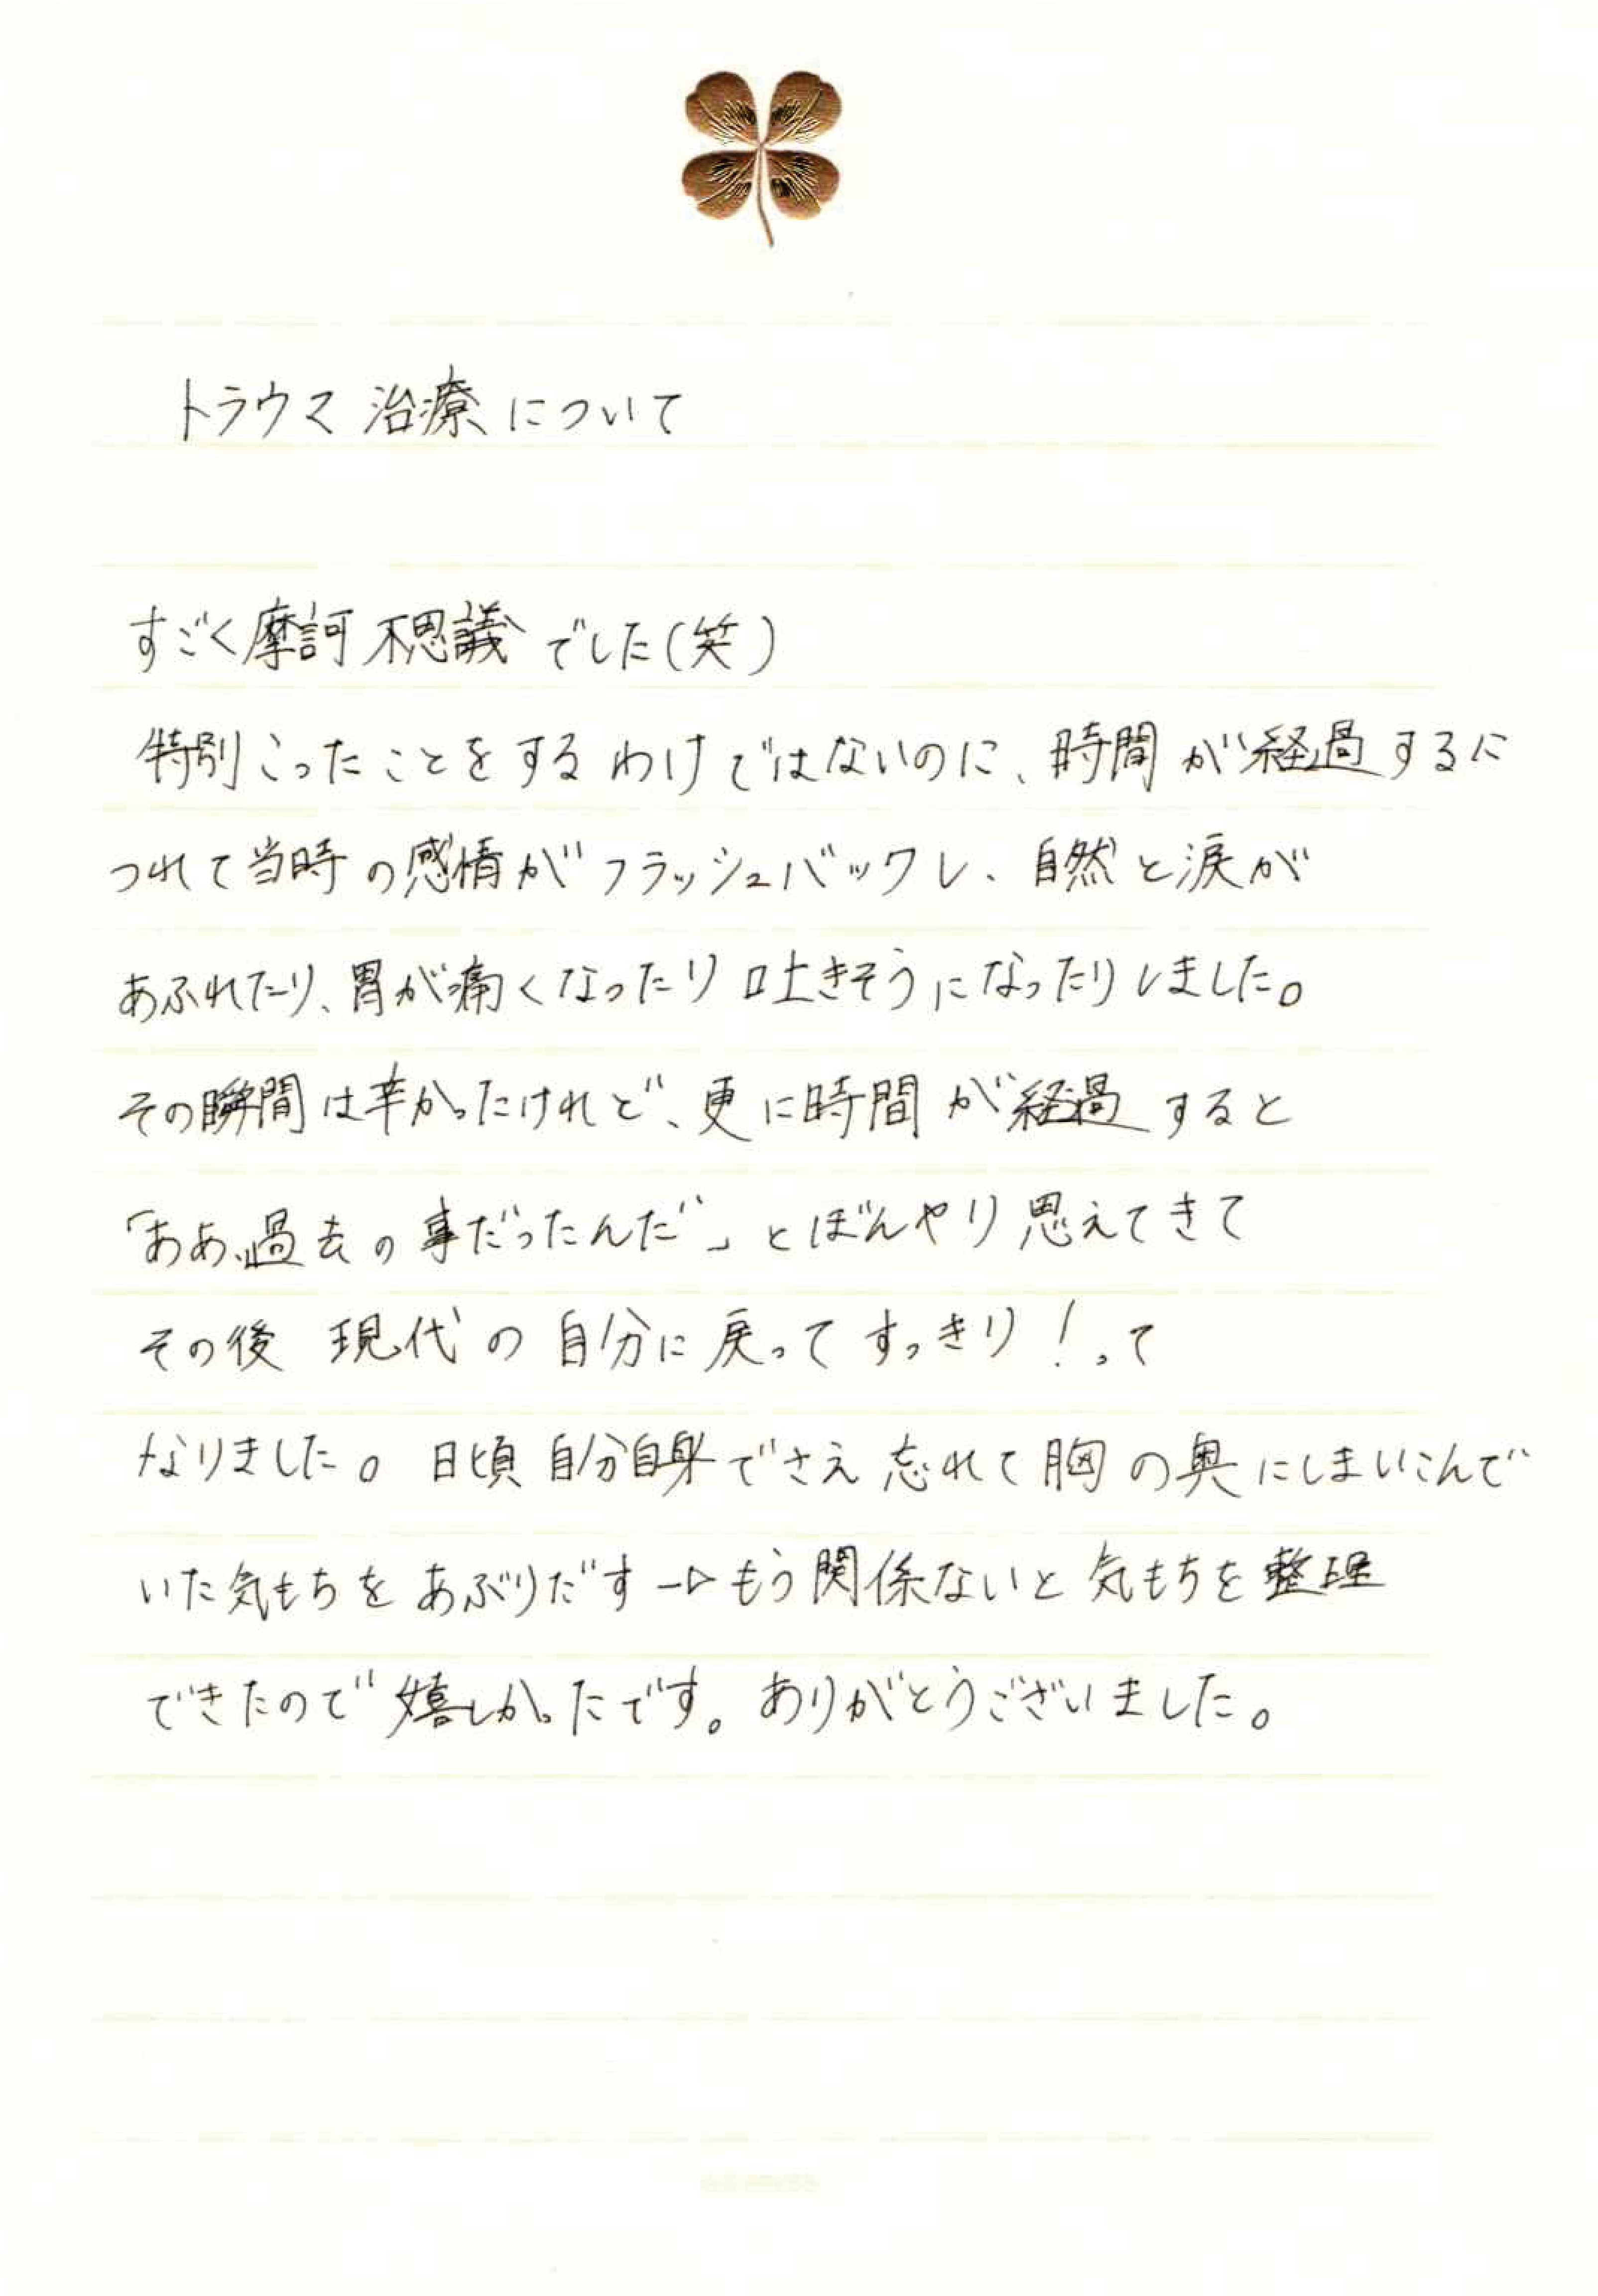 トラウマ治療について
すごく摩訶不思議でした(笑)
特別こったことをするわけではないのに、時間が経過するに
つれて当時の感情がフラッシュバックし、自然と涙が
あふれたり、胃が痛くなったり吐きそうになったりしました。
その瞬間は辛かったけれど、更に時間が経過すると
「ああ、過去の事だったんだ」とぼんやり思えてきて
その後 現代の自分に戻ってすっきり!って
なりました。日頃自分自身でさえ忘れて胸の奥にしまいこんで
いた気もちをあぶりだす→もう関係ないと気もちを整理
できたので嬉しかったです。ありがとうございました。